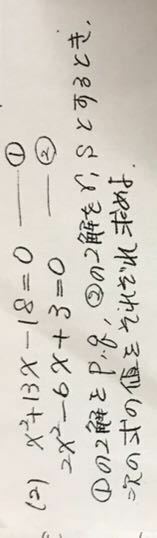 (2) x²+13x-18=0 ——①
2x²-6x+3=0 ——②
①の2解をp.q、②の2解をr,sとするとき、
次の式の値をそれぞれ求めよ.